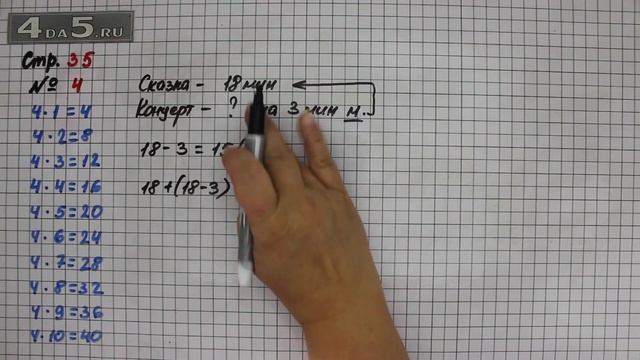 4DA5.RU
Стр. 35
№ 4
4·1=4
4·2=8
4·3=12
4·4=16
4·5=20
4·6=24
4·7=28
4·8=32
4·9=36
4·10=40
Сказка - 18 мин
Концерт - ? на 3 мин м.
18-3=15
18+(18-3)